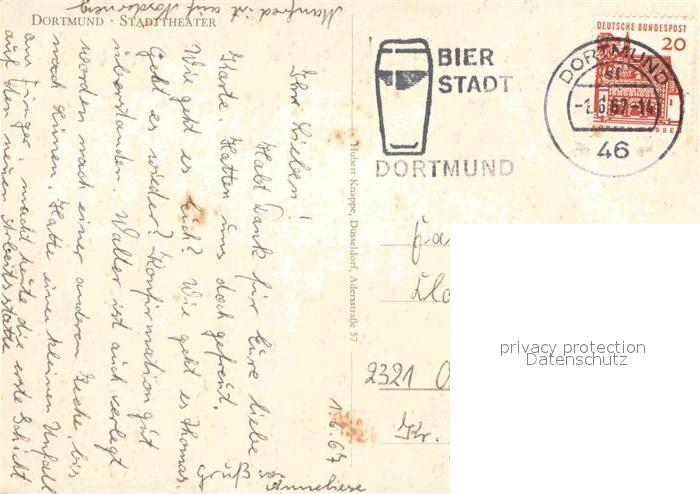 Manfred ist auf Norderney
DORTMUND · STADTTHEATER
Ihr Lieben!
Habt Dank für Eure liebe
Karte. Hatten uns doch gefreut.
Wie geht es Euch? Wie geht es Thomas.
Geht es wieder? Konfirmation gut
überstanden. Walter ist auch verlegt
worden nach einer anderen Zeche, bis
nach Lünen. Hatte einen kleinen Unfall
am Finger, macht heute die erste Schicht
auf der neuen Arbeitsstätte
Gruß von
Anneliese
1.6.67
Hubert Knappe, Düsseldorf, Adersstraße 57
BIER
STADT
DORTMUND
DEUTSCHE BUNDESPOST
20
DORTMUND
-1.6.67-14
46
2321
Kr.
privacy protection
Datenschutz